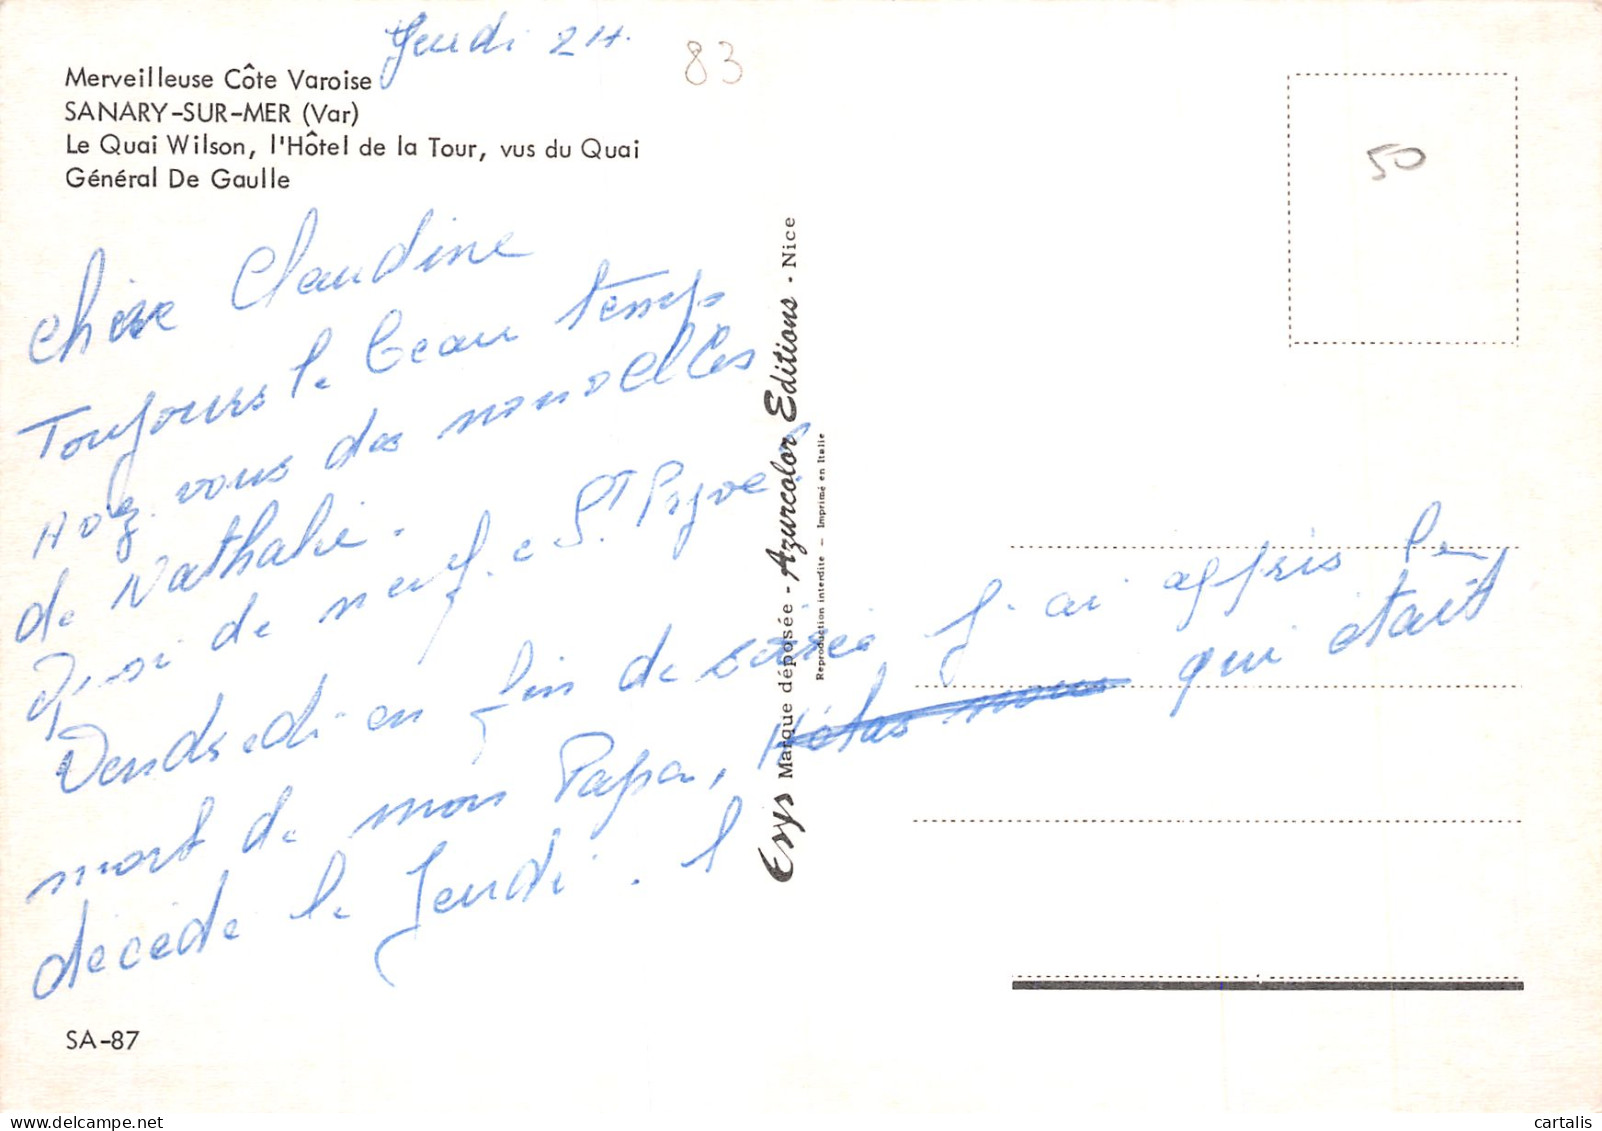 Jeudi 24.
83
Merveilleuse Côte Varoise
SANARY-SUR-MER (Var)
Le Quai Wilson, l'Hôtel de la Tour, vus du Quai
Général De Gaulle
50
Chère Claudine
Toujours le beau temps
Avez vous des nouvelles
de Nathalie.
Quoi de neuf à St Pryvé
Vendredi en fin de soirée j'ai appris la
mort de mon Papa, Hélas nous qui était
décédé le Jeudi. l
Erys Marque déposée - Azurcolor Editions - Nice
Reproduction interdite - Imprimé en Italie
SA-87
cartalis